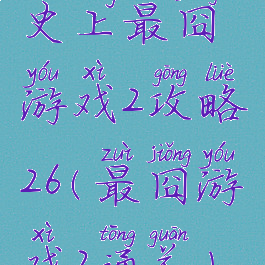 史上最囧
yóu xì gōng lüè
游戏2攻略
zuì jiǒng yóu
26(最囧游
xì tōng guān
戏2通关)